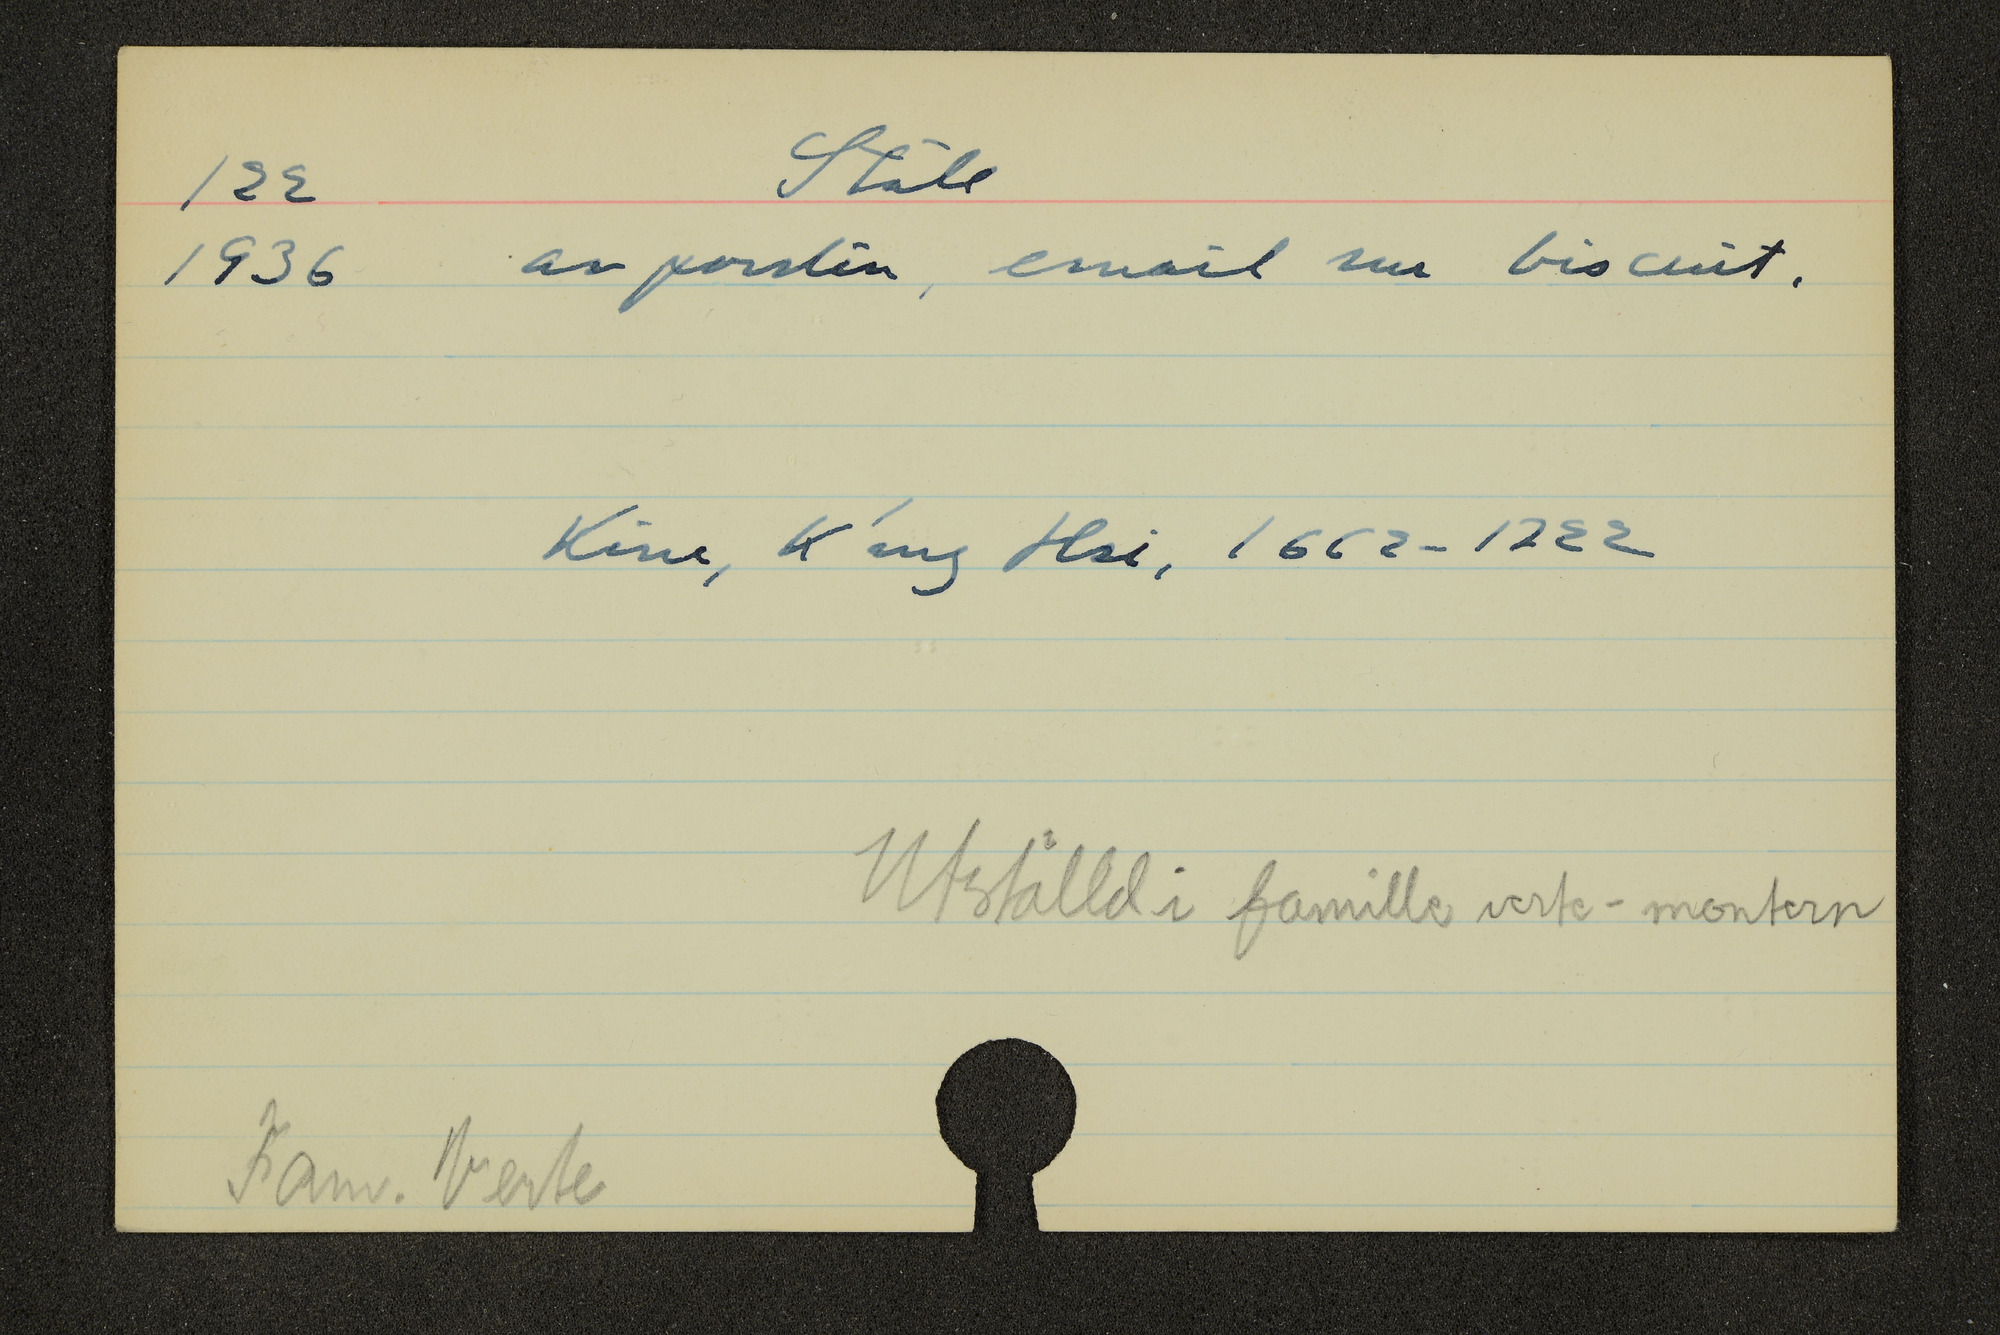 122 Skål
1936 av porslin, email sur biscuit.
Kina, K'ang Hsi, 1662-1722
Utställd i famille verte-montern
Fam. Verte